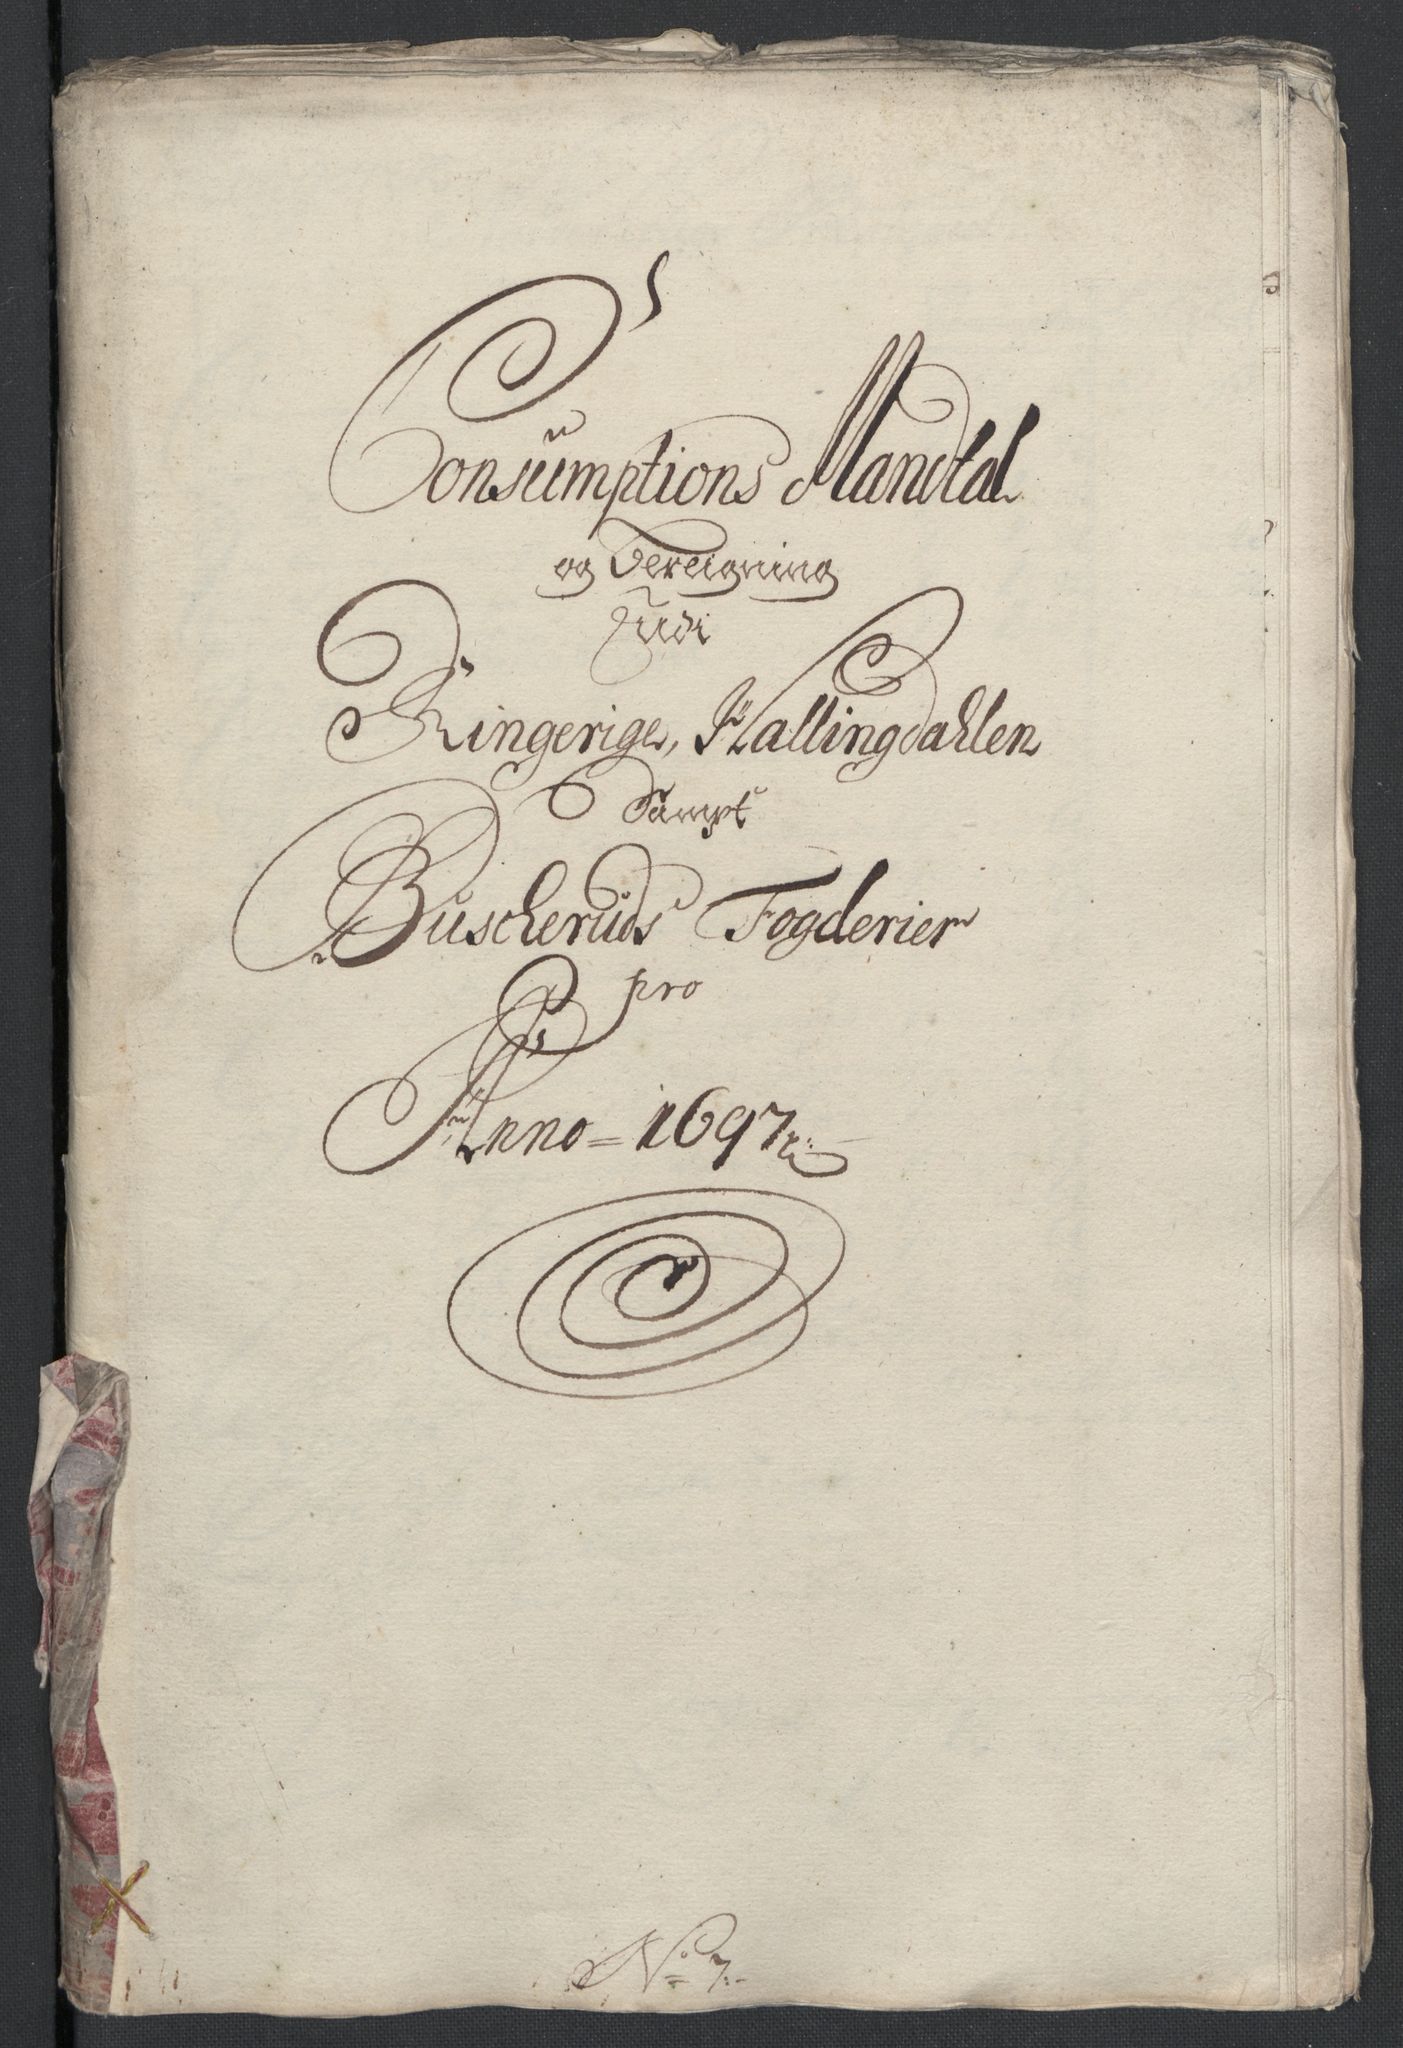 Consumptions Mandtal
og Beregning
Udi
Ringerige, Hallingdahlen
Sampt
Buscheruds Fogderier
pro
Anno = 1697
No 7.